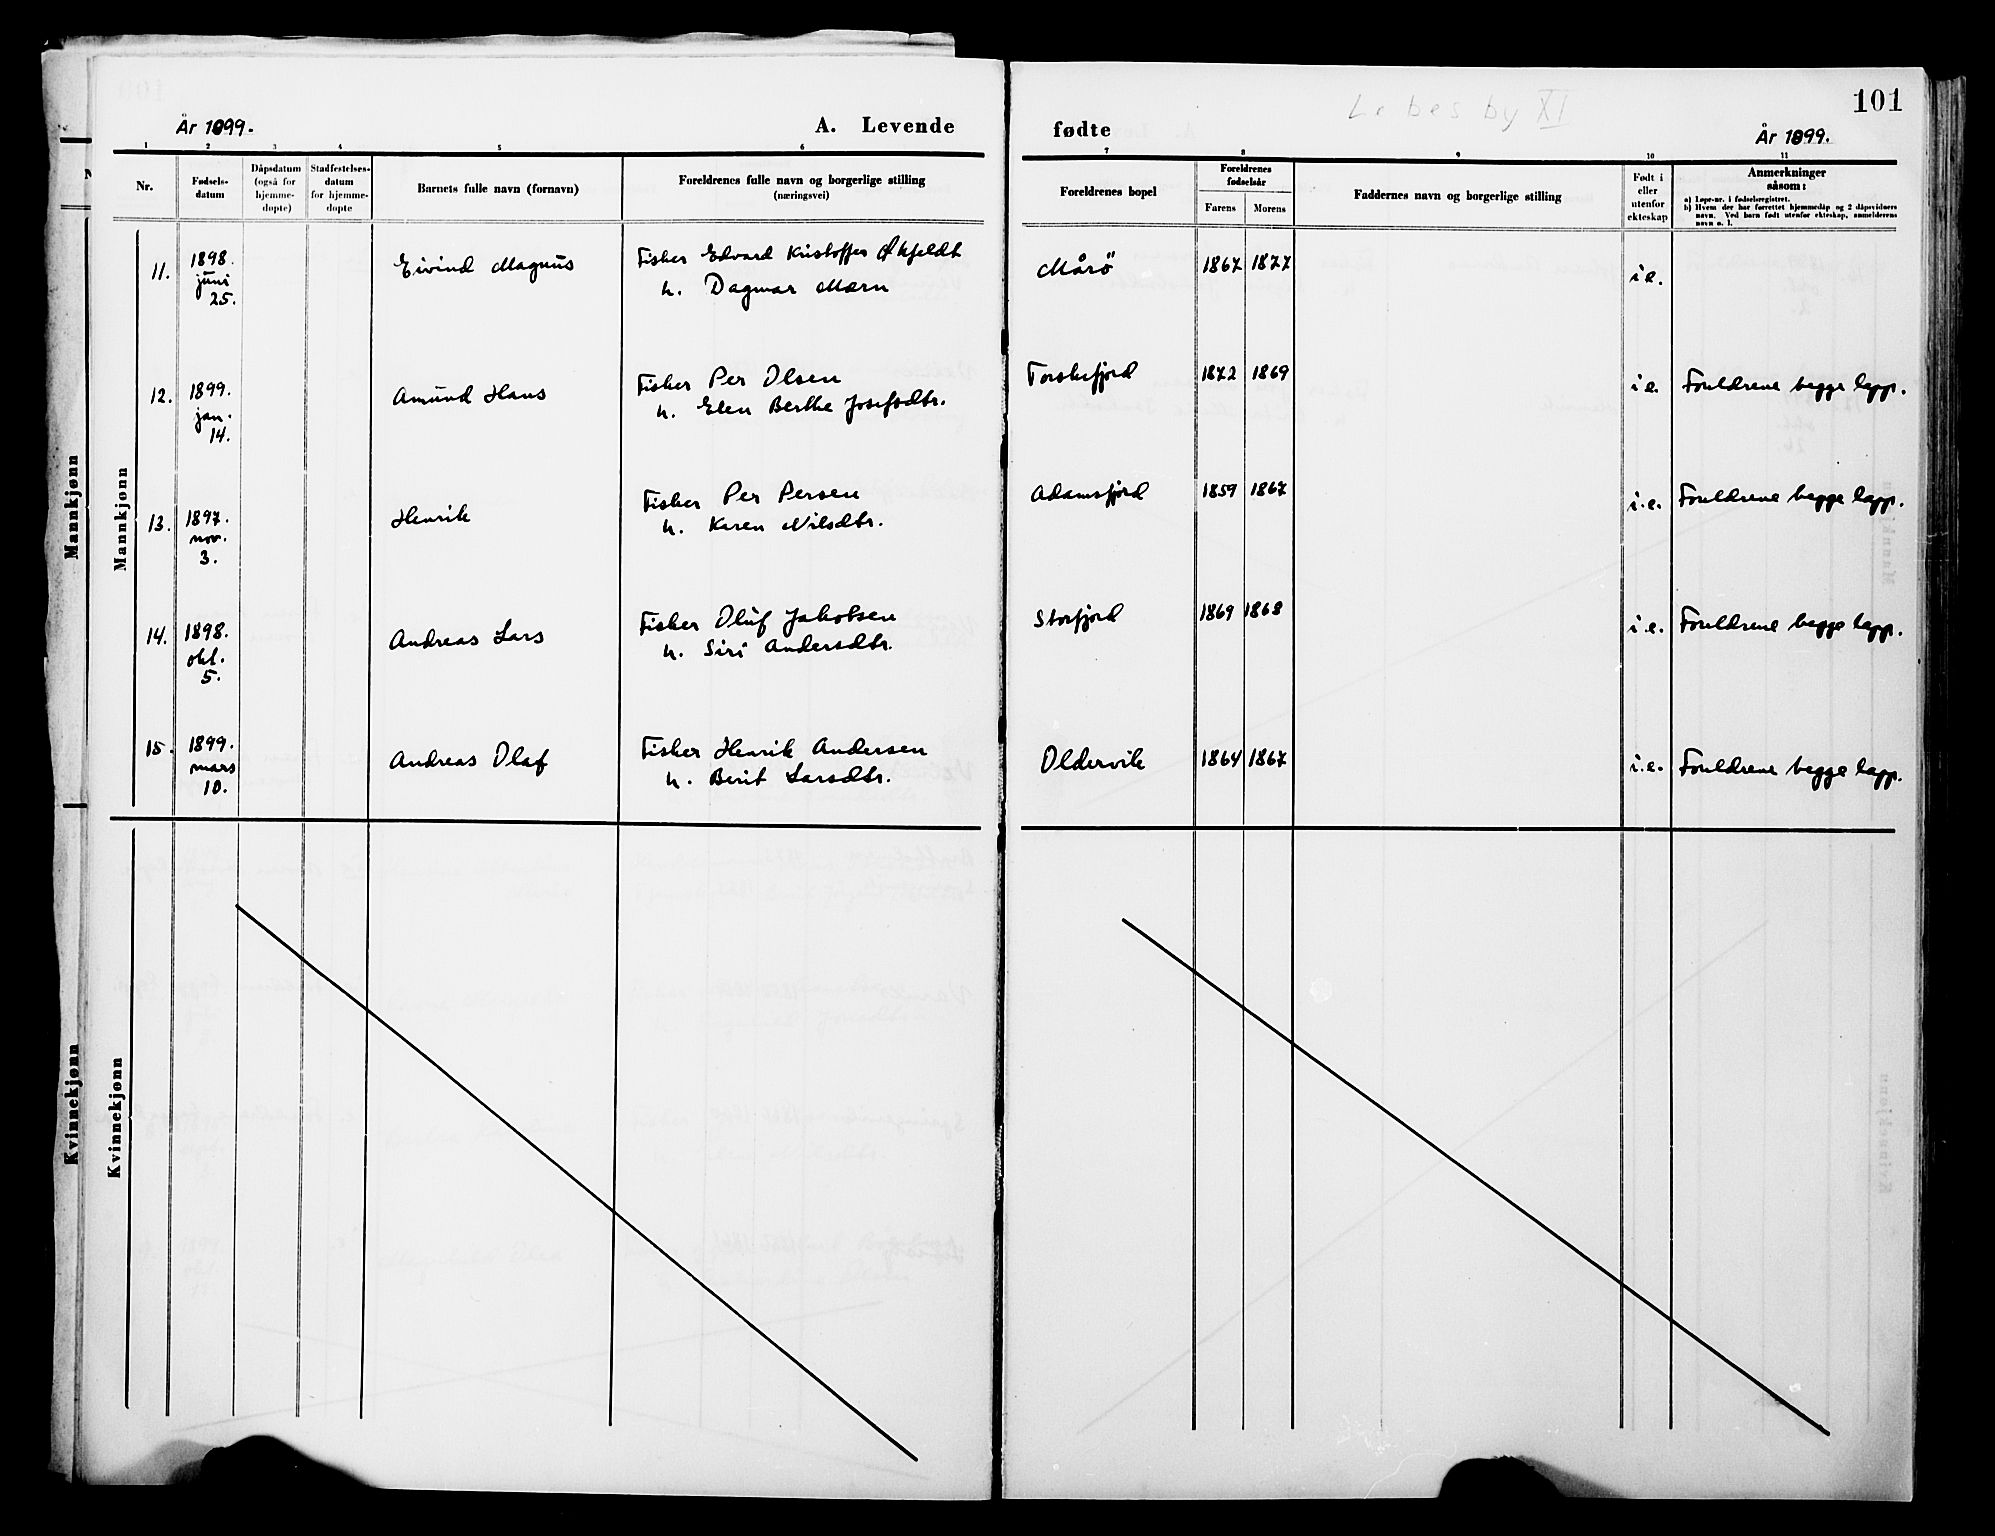 År 1899.
A. Levende
fødte
Lebesby XI
101
År 1899.
1 2 3 4 5 6 7 8 9 10 11
Nr.
Fødsels-
datum
Dåpsdatum
(også for
hjemme-
døpte)
Stadfestelses-
datum
for hjemme-
døpte
Barnets fulle navn (fornavn)
Foreldrenes fulle navn og borgerlige stilling
(næringsvei)
Foreldrenes bopel
Foreldrenes
fødselsår
Farens Morens
Faddernes navn og borgerlige stilling
Født i
eller
utenfor
ekteskap
Anmerkninger
såsom:
a) Løpe-nr. i fødselsregistret.
b) Hvem der har forrettet hjemmedåp og 2 dåpsvidners
navn. Ved barn født utenfor ekteskap, anmelderens
navn o. l.
Mannkjønn
Mannkjønn
11.
1898.
juni
25.
Eivind Magnus
Fisker Edvard Kristoffer
h. Dagmar Marn
Mårö
1867 1877
i e.
12.
1899.
jan.
14.
Amund Hans
Fisker Per Olsen
h. Elen Berthe Josefsdtr.
Torskefjord
1872 1869
i e.
Foreldrene begge lapp.
13.
1897.
nov.
3.
Henrik
Fisker Per Persen
h. Karen Nilsdtr.
Adamsfjord
1859 1867
i. e.
Foreldrene begge lapp.
14.
1898.
okt.
5.
Andreas Lars
Fisker Oluf Jakobsen
h. Siri Andersdtr.
Storfjord
1869 1868
i e.
Foreldrene begge lapp.
15.
1899.
mars
10.
Andreas Olaf
Fisker Henrik Andersen
h. Berit Larsdtr.
Oldervik
1864 1867
i. e.
Foreldrene begge lapp.
Kvinnekjønn
Kvinnekjønn